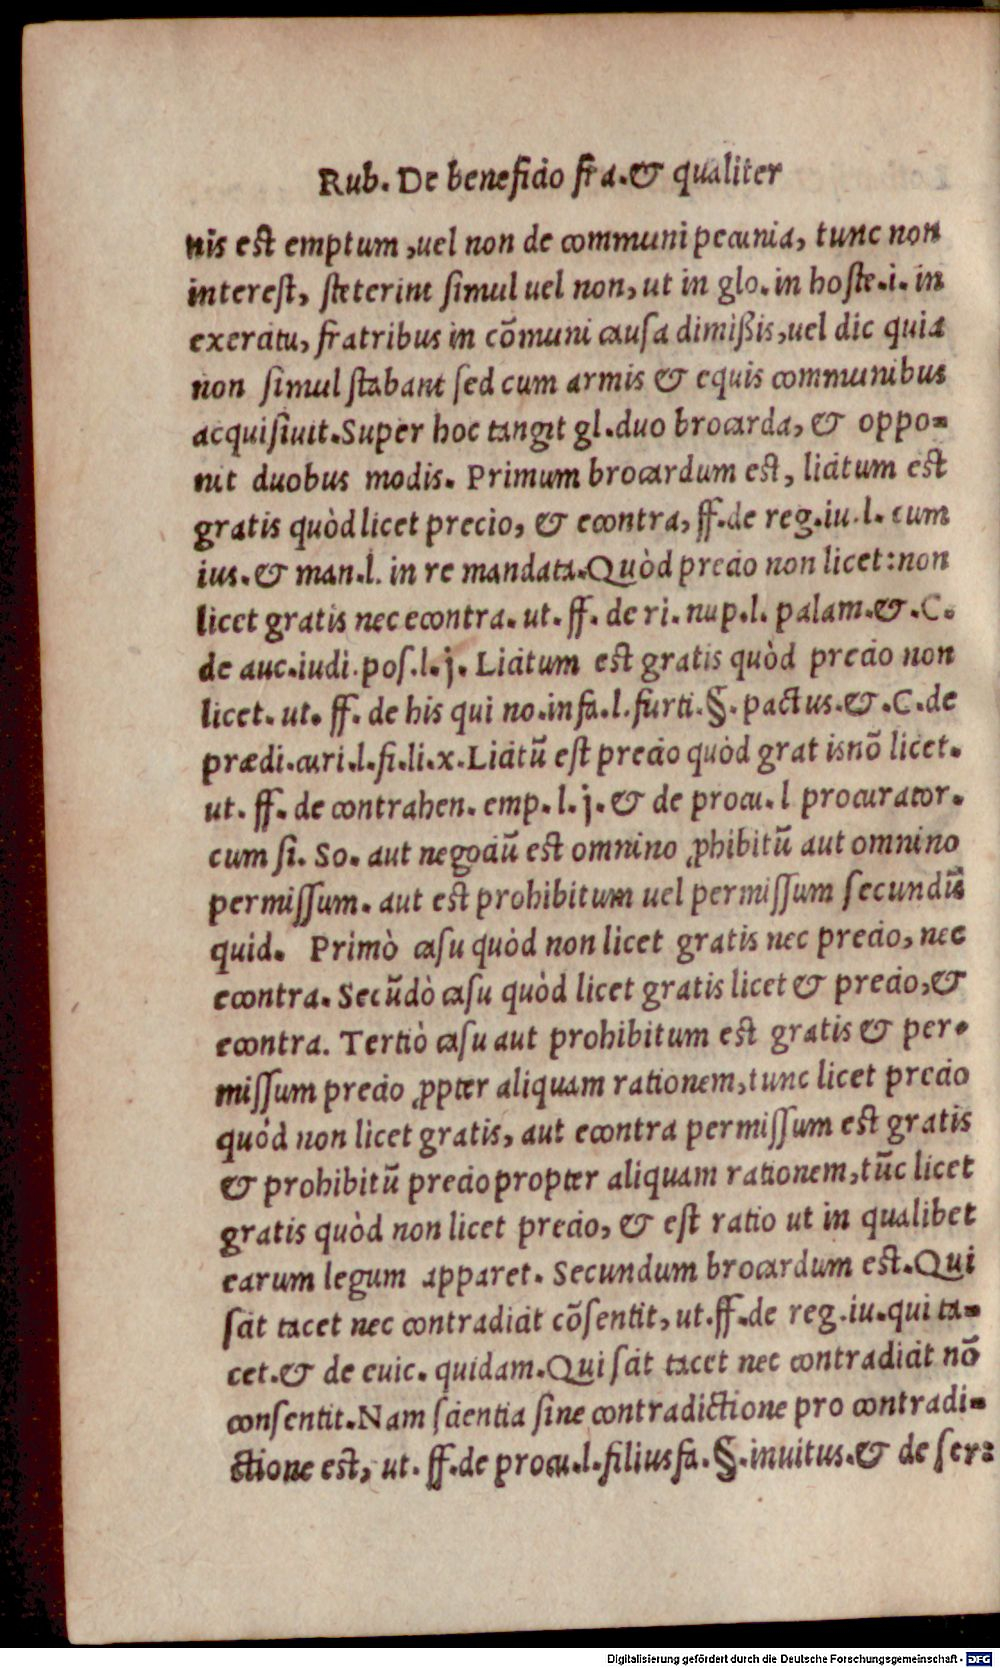 Rub. De beneficio fra. & qualiter
nis est emptum, uel non de communi pecunia, tunc non
interest, steterint simul uel non, ut in glo. in hoste. i. in
exercitu, fratribus in cõmuni causa dimißis, uel dic quia
non simul stabant sed cum armis & equis communibus
acquisiuit. Super hoc tangit gl. duo brocarda, & oppo-
nit duobus modis. Primum brocardum est, licitum est
gratis quòd licet precio, & econtra, ff. de reg. iu. l. cum
ius. & man. l. in re mandata. Quòd precio non licet: non
licet gratis nec econtra. ut. ff. de ri. nup. l. palam. &. C.
de auc. iudi. pos. l. j. Licitum est gratis quòd precio non
licet. ut. ff. de his qui no. infa. l. furti. §. pactus. &. C. de
prædi. curi. l. fi. li. x. Licitũ est precio quòd grat isnõ licet.
ut. ff. de contrahen. emp. l. j. & de procu. l procurator.
cum si. So. aut negociũ est omnino ꝓhibitũ aut omnino
permissum. aut est prohibitum uel permissum secundũ
quid. Primò casu quòd non licet gratis nec precio, nec
econtra. Secũdò casu quòd licet gratis licet & precio, &
econtra. Tertiò casu aut prohibitum est gratis & per-
missum precio ꝓpter aliquam rationem, tunc licet precio
quòd non licet gratis, aut econtra permissum est gratis
& prohibitũ precio propter aliquam rationem, tũc licet
gratis quòd non licet precio, & est ratio ut in qualibet
earum legum apparet. Secundum brocardum est. Qui
scit tacet nec contradicit cõsentit, ut. ff. de reg. iu. qui ta-
cet. & de euic. quidam. Qui scit tacet nec contradicit nõ
consentit. Nam scientia sine contradictione pro contradi-
ctione est, ut. ff. de procu. l. filiusfa. §. inuitus. & de ser:
Digitalisierung gefördert durch die Deutsche Forschungsgemeinschaft - DFG